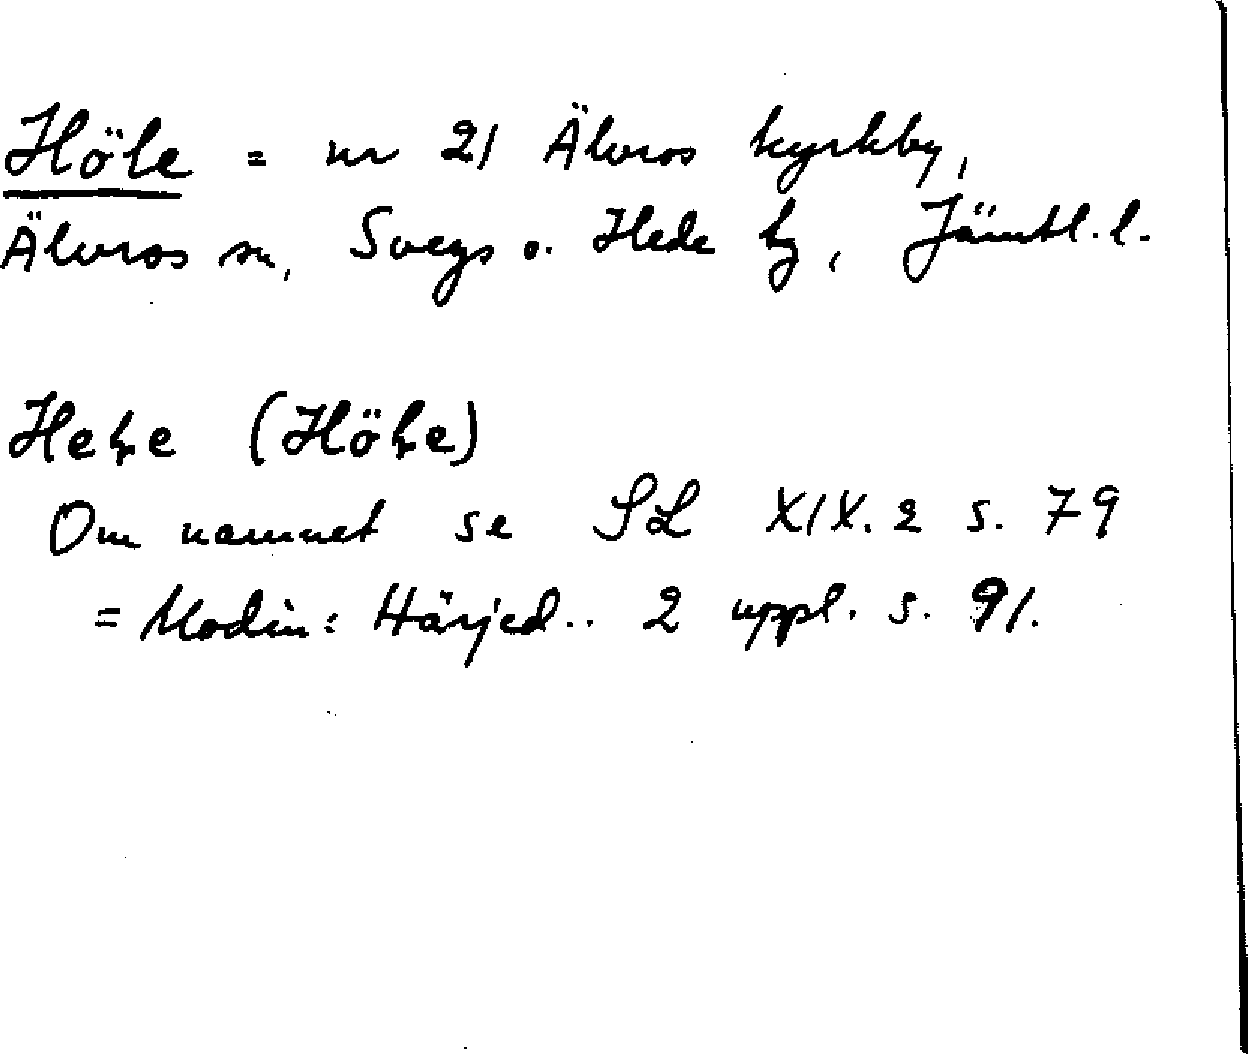 Höle = nr 21 Älvros kyrkby,
Älvros sn, Svegs o. Hede tg, Jämtl. l.
Heɫe (Höɫe)
Om namnet se SL XIX. 2 s. 79
= Modin: Härjed.. 2 uppl. s. 91.